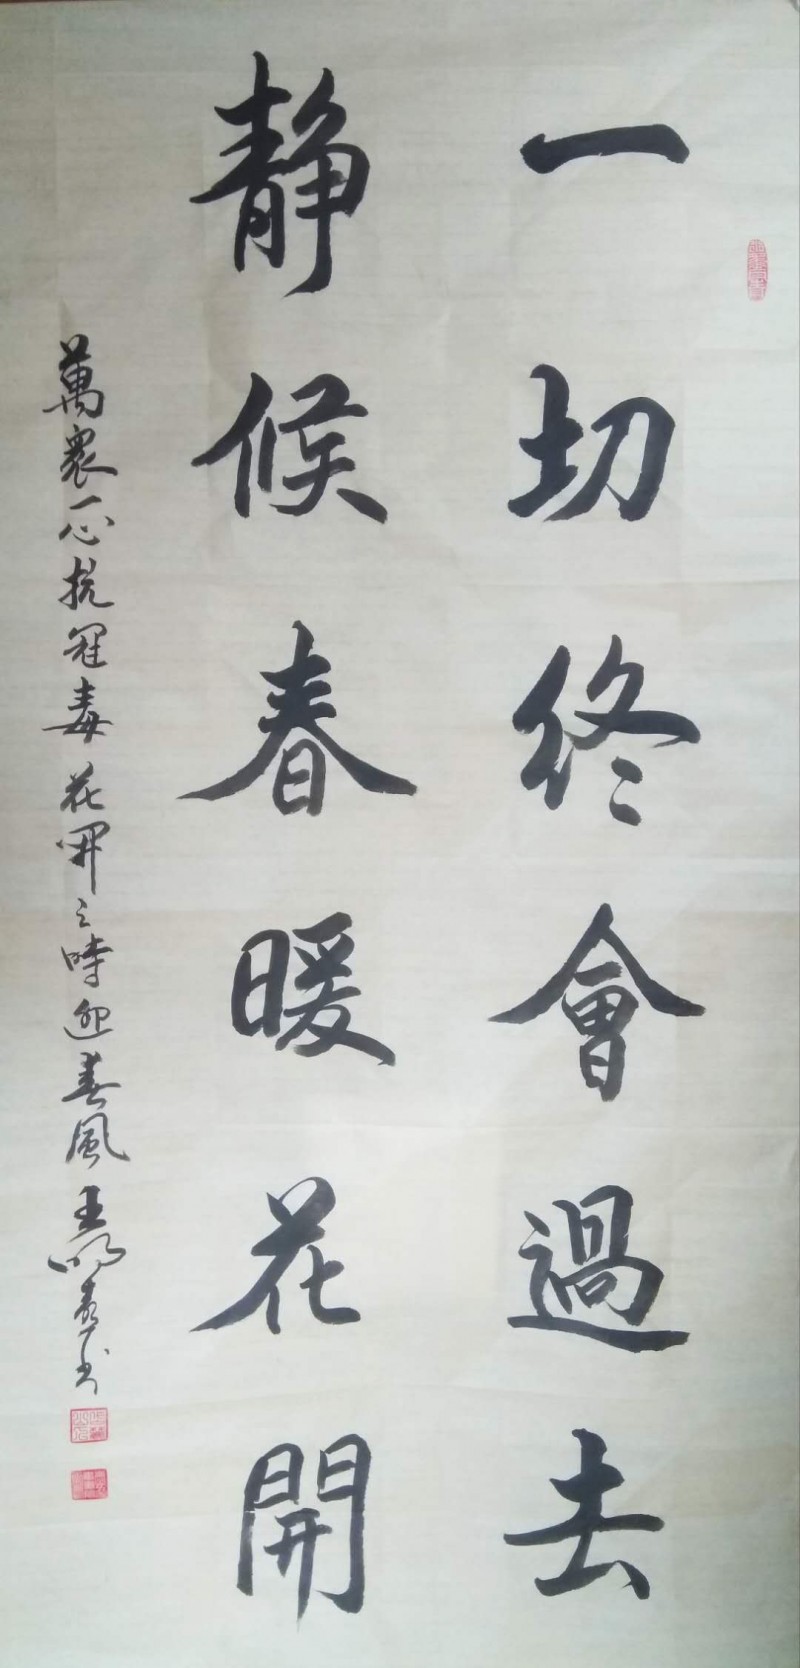 一切終會過去
静候春暖花開
萬衆一心抗冠毒花開之時迎春風王明春书